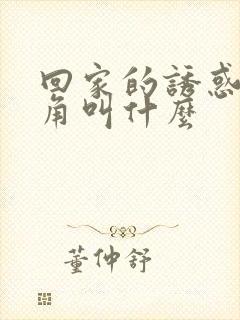 回家的誘惑
角叫什麼
董仲舒